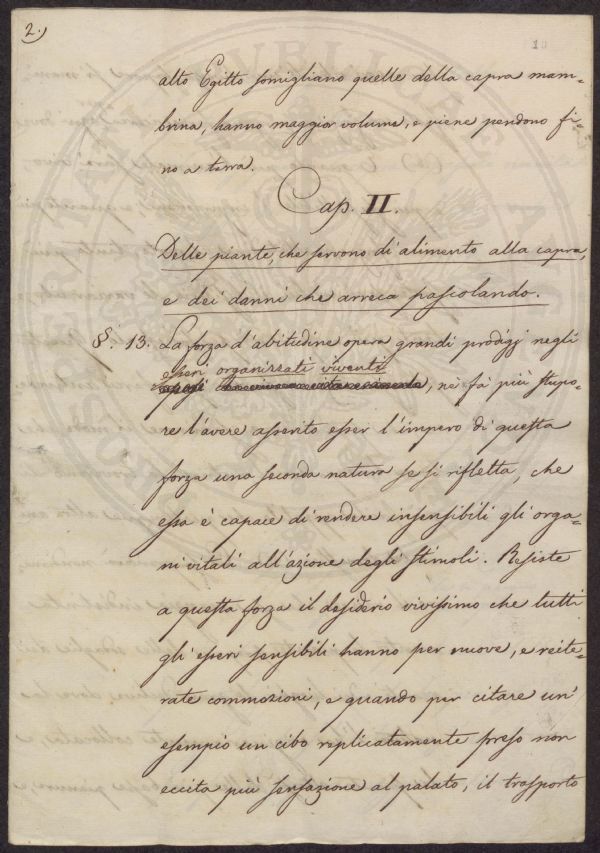 2.)
10
alto Egitto somigliano quelle della capra mam-
brina, hanno maggior volume, e piene pendono fi-
no a terra.
Cap. II.
Delle piante, che servono di alimento alla capra,
e dei danni che arreca pascolando.
§. 13. La forza d'abitudine opera grandi prodigj negli
esseri organizzati viventi
, nè fà più stupo-
re l'avere asserito esser l'impero di questa
forza una seconda natura se si rifletta, che
essa è capace di rendere insensibili gli orga-
ni vitali all'azione degli stimoli. Resiste
a questa forza il desiderio vivissimo che tutti
gli esseri sensibili hanno per nuove, e reite-
rate commozioni, e quando per citare un'
esempio un cibo replicatamente preso non
eccita più sensazione al palato, il trasporto